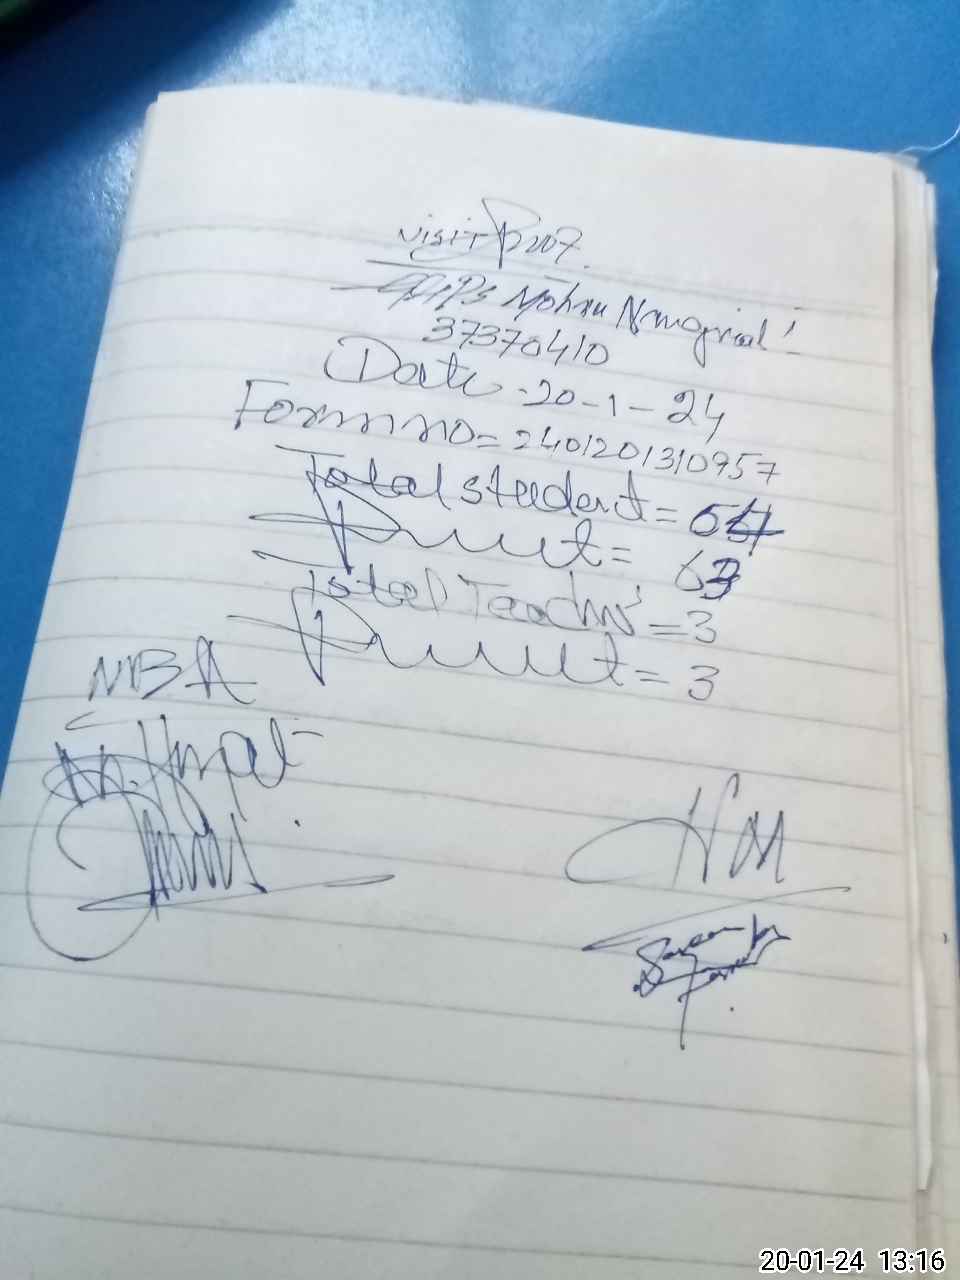 visit Proof.
GGPS Mohra Nangrial
37370410
Date - 20-1-24
Form no = 2401201310957
Total student = 64
Present = 63
Total Teachers = 3
Present = 3
MEA
HM
20-01-24 13:16